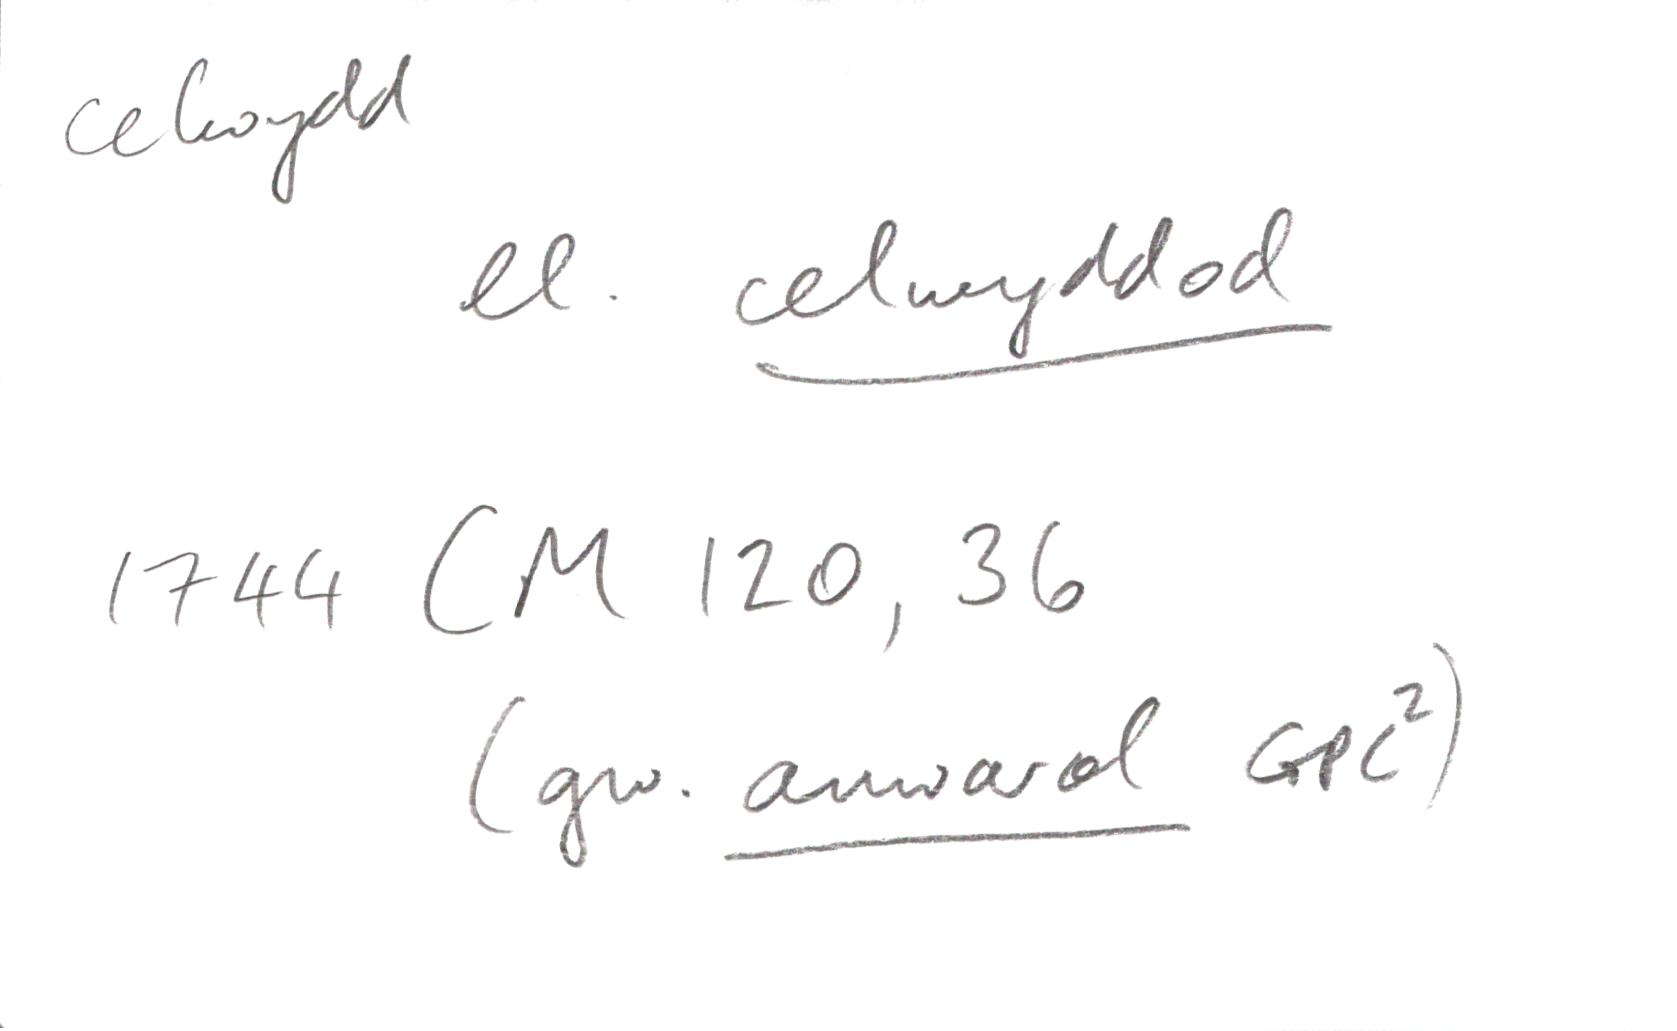 celwydd
ll. celwyddod
1744 CM 120, 36
(gw. anwarol GPC²)